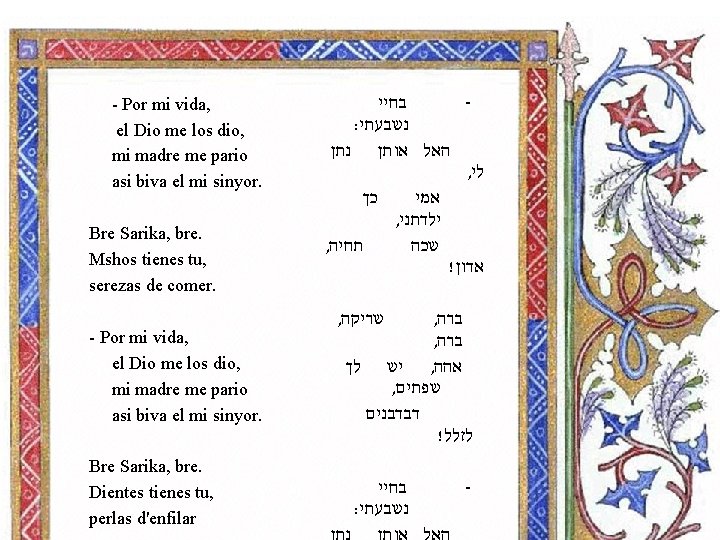 - Por mi vida,
el Dio me los dio,
mi madre me pario
asi biva el mi sinyor.
Bre Sarika, bre.
Mshos tienes tu,
serezas de comer.
- Por mi vida,
el Dio me los dio,
mi madre me pario
asi biva el mi sinyor.
Bre Sarika, bre.
Dientes tienes tu,
perlas d'enfilar
- בחיי
נשבעתי:
האל אותן נתן
לי,
אמי כך
ילדתני,
שכה תחיה,
אדון!
ברה, שריקה,
ברה,
אחה, יש לך
שפתים,
דבדבנים
לזלל!
- בחיי
נשבעתי:
האל אותן נתן